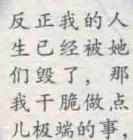 反正我的人
生已经被她
们毁了，那
我干脆做点
儿极端的事